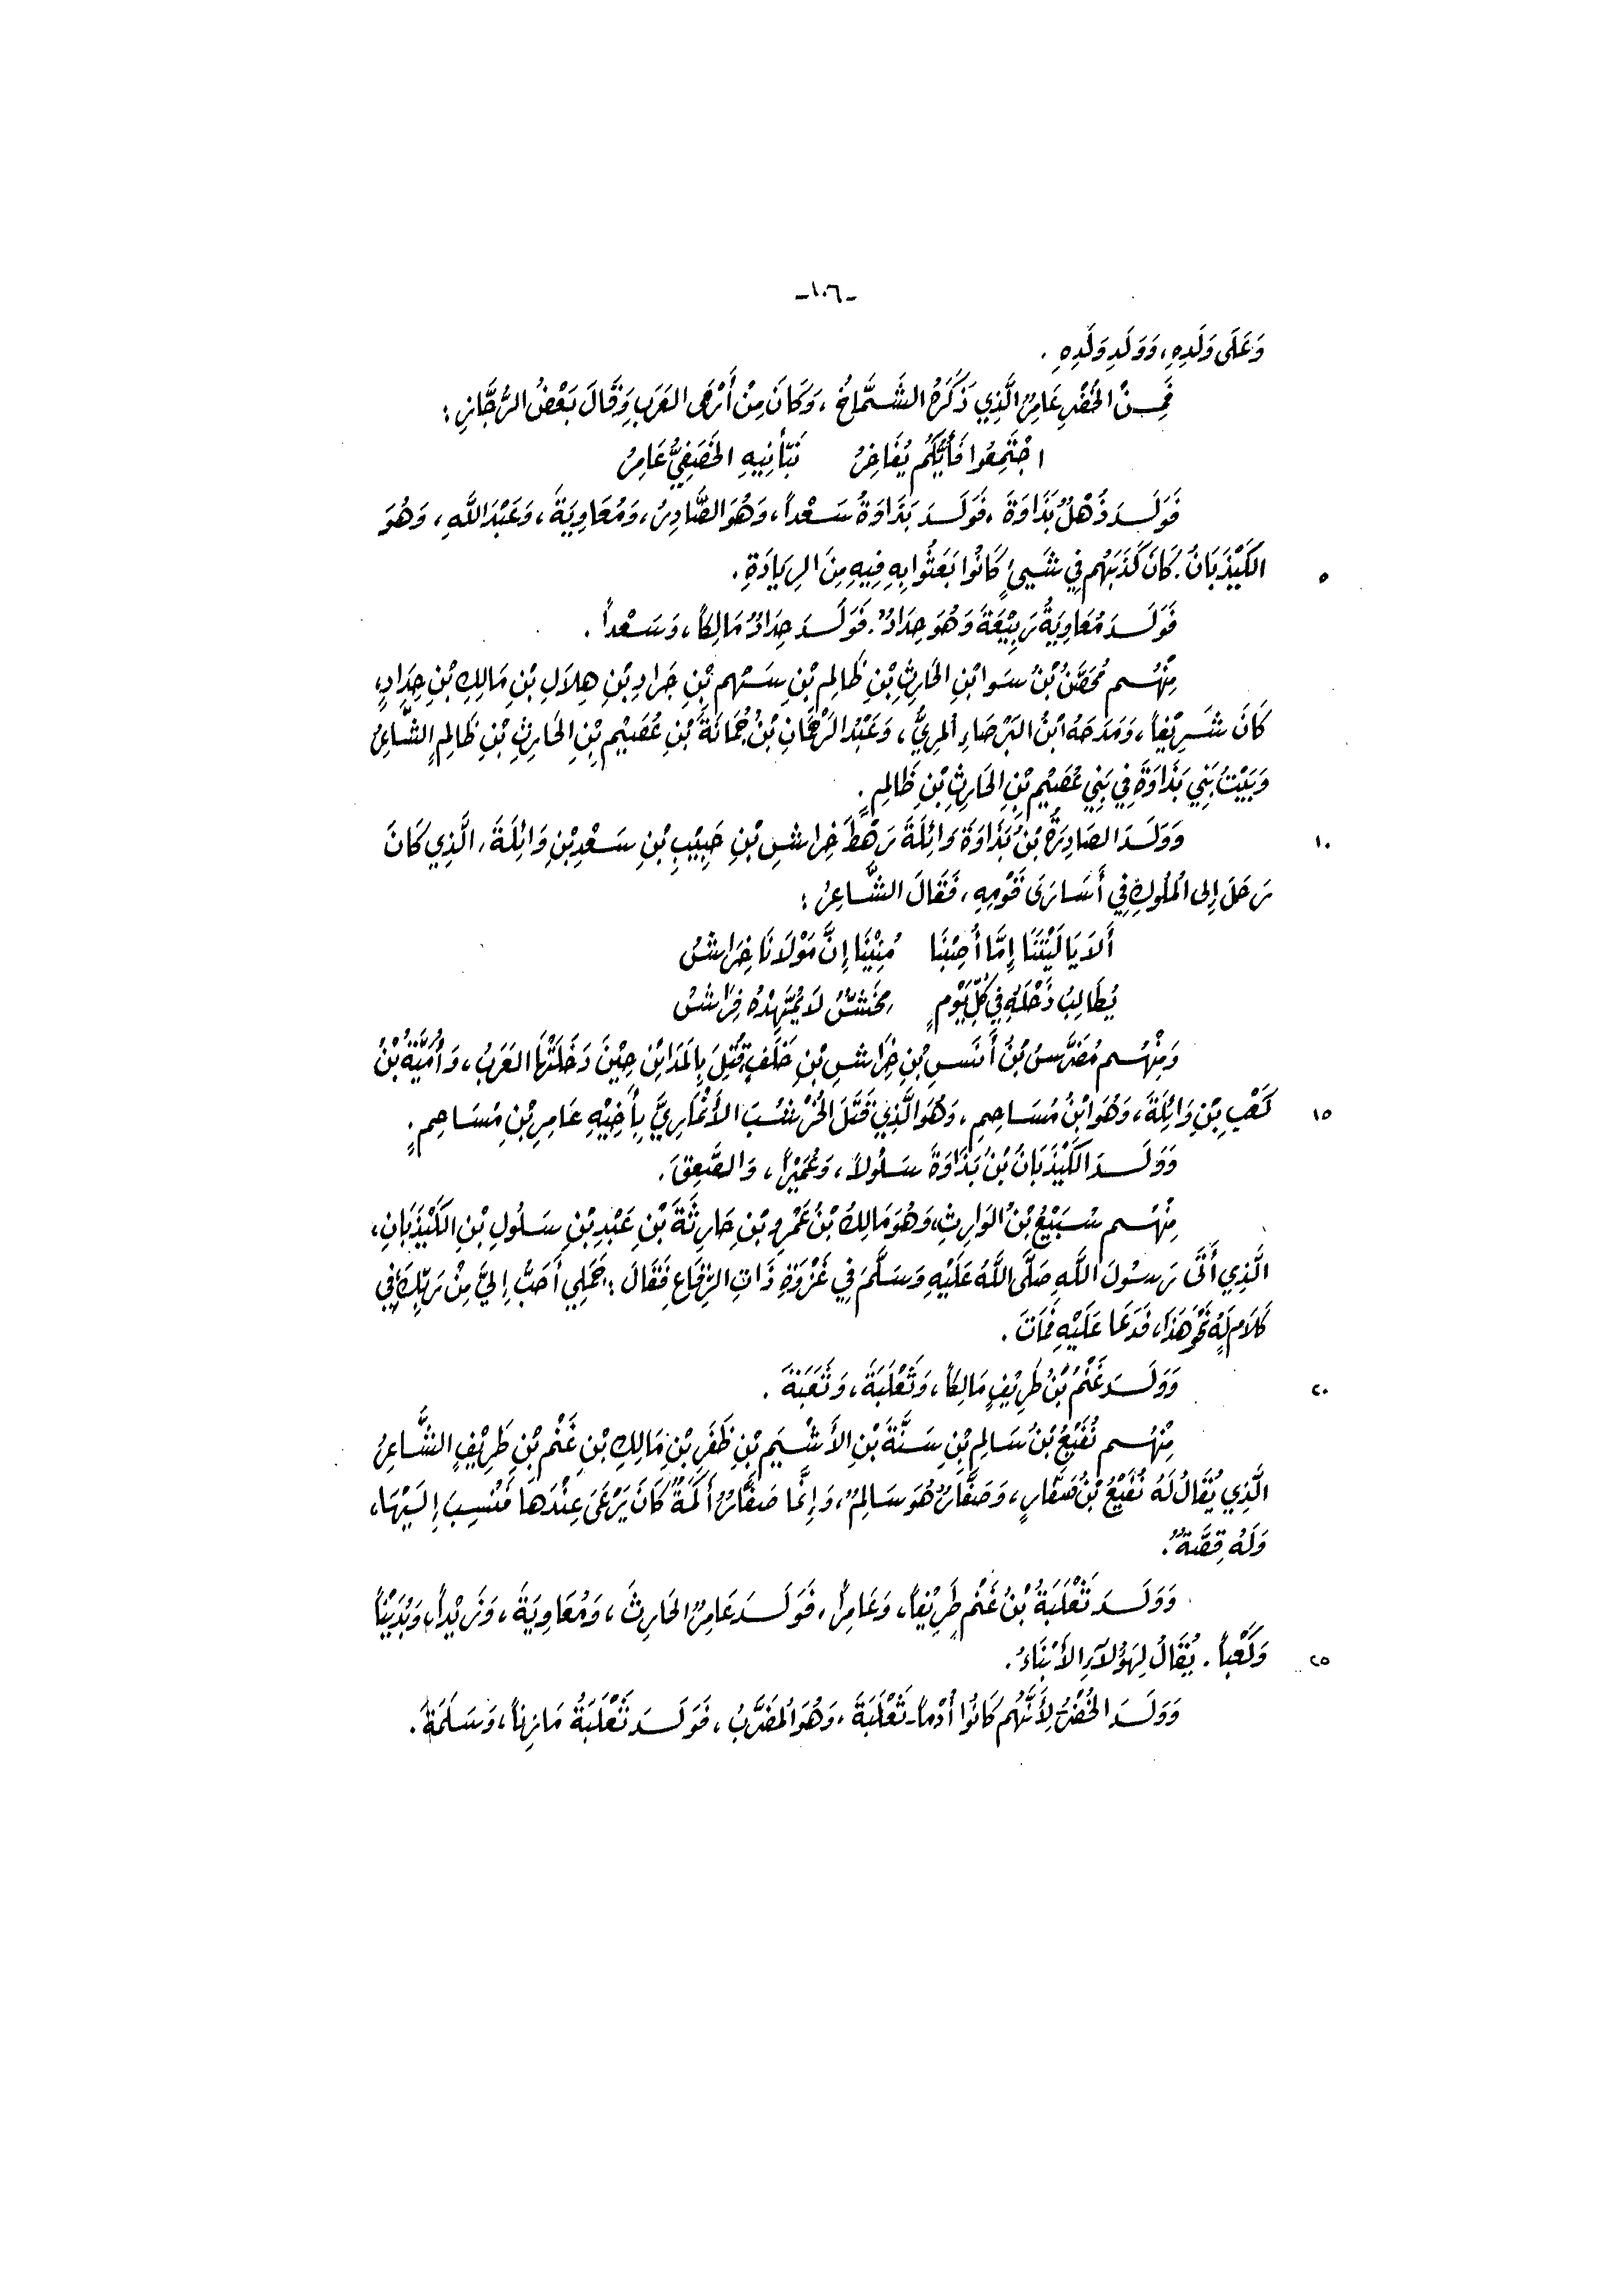 -١٠٦-
وَعَلَى وَلَدِهِ، وَوَلَدِ وَلَدِهِ .
فَمِنْ الخُضْرِ عَامِرٌ الَّذِي ذَكَرَهُ الشَّمَّاخُ ، وَكَانَ مِنْ أَرْمَى العَرَبِ وَقَالَ بَعْضُ الرُّجَّازِ :
اجْتَمِعُوا فَأَيُّكُم يُفَاخِرُ    الخَصَفِيُّ عَامِرُ
فَوَلَدَ ذُهْلٌ بَذَاوَةَ ، فَوَلَدَ بَذَاوَةُ سَعْداً ، وَهُوَ الصَّادِرُ ، وَمُعَاوِيَةَ ، وَعَبْدَاللَّهِ ، وَهُوَ
٥ الكَيْذَبَانُ . كَانَ كَذَبَهُم فِي شَيْئٍ كَانُوا بَعَثُوا بِهِ فِيهِ مِنَ الرِيَادَةِ .
فَوَلَدَ مُعَاوِيَةُ رَبِيْعَةَ وَهُوَ حِدَادٌ . فَوَلَدَ حِدَادٌ مَالِكاً ، وَسَعْداً .
مِنْهُم مُحَصَّنُ بْنُ سَوا بْنِ الحَارِثِ بْنِ ظَالِمِ بْنِ سَهْمِ بْنِ جَرَادِ بْنِ هِلَالِ بْنِ مَالِكِ بْنِ حِدَادٍ ،
كَانَ شَرِيْفاً ، وَمَدَحَهُ ابْنُ البَرْصَاءِ المرِيُّ ، وَعَبْدُ الرَّحْمَانِ بْنُ جُمَانَةَ بْنِ عُصَيْمِ بْنِ الحَارِثِ بْنِ ظَالِمٍ الشَّاعِرُ
وَبَيْتُ بَنِي بَذَاوَةَ فِي بَنِي عُصَيْمِ بْنِ الحَارِثِ بْنِ ظَالِمٍ .
١٠ وَوَلَدَ الصَادِرَةُ بْنُ بَذَاوَةَ وَائِلَةَ رَهْطَ خِرَاشِ بْنِ حَبِيْبِ بْنِ سَعْدِ بْنِ وَائِلَةَ ، الَّذِي كَانَ
رَحَلَ إِلى الْمُلُوكِ فِي أَسَارَى قَوْمِهِ ، فَقَالَ الشَّاعِرُ :
أَلاَ يَا لَيْتَنَا إِمَّا أُصِبْنَا    مُنِيْنَا إِنَّ مَوْلَانَا خِرَاشُ
يُطَالِبُ ذَحْلَهُ فِي كُلِّ يَوْمٍ    مِخَشٌّ لَا يُمَهِّدْهُ فِرَاشُ
وَمِنْهُم مُضَرِّسُ بْنُ أَنَسِ بْنِ خِرَاشِ بْنِ خَلَفٍ قُتِلَ بِالمَدَائِنِ حِيْنَ دَخَلَتْهَا العَرَبُ ، وَأُمَيَّةُ بْنُ
١٥ كَعْبِ بْنِ وَائِلَةَ ، وَهُوَ ابْنُ مُسَاحِمٍ ، وَهُوَ الَّذِي قَتَلَ الخُرْشُبَ الأَنْمَارِيَّ بِأَخِيْهِ عَامِرِ بْنِ مُسَاحِمٍ .
وَوَلَدَ الكَيْذَبَانُ بْنُ بَذَاوَةَ سَلُولاً ، وَعُمَيْراً ، وَالصَّعِقَ .
مِنْهُم سُبَيْعُ بْنُ الوَارِثِ ، وَهُوَ مَالِكُ بْنُ عَمْرِو بْنِ حَارِثَةَ بْنِ عَبْدِ بْنِ سَلُولِ بْنِ الكَيْذَبَانِ ،
الَّذِي أَتَى رَسُولَ اللَّهِ صَلَّى اللَّهُ عَلَيْهِ وَسَلَّمَ فِي غَزْوَةِ ذَاتِ الرِّقَاعِ فَقَالَ : جَمَلِي أَحَبُّ إِلَيَّ مِنْ رَبِّكَ فِي
كَلَامٍ لَهُ نَحْوَ هَذَا ، فَدَعَا عَلَيْهِ فَمَاتَ .
٢٠ وَوَلَدَ غَنْمُ بْنُ طَرِيْفٍ مَالِكاً ، وَثَعْلَبَةَ ، .
مِنْهُم نُفَيْعُ بْنُ سَالِمِ بْنِ سَنَّةَ بْنِ الأَشْيَمِ بْنِ ظَفَرِ بْنِ مَالِكِ بْنِ غَنْمِ بْنِ طَرِيْفٍ الشَّاعِرُ
الَّذِي يُقَالُ لَهُ نُفَيْعُ بْنُ صَفَّارٍ ، وَصَفَّارٌ هُوَ سَالِمٌ ، وَإِنَّمَا صَفَّارٌ أَكَمَةٌ كَانَ يَرْعَى عِنْدَهَا فَنُسِبَ إِلَيْهَا ،
وَلَهُ قِصَّةٌ .
وَوَلَدَ ثَعْلَبَةُ بْنُ غَنْمٍ طَرِيْفاً ، وَعَامِراً ، فَوَلَدَ عَامِرٌ الحَارِثَ ، وَمُعَاوِيَةَ ، وَزَيْداً ، وَبُدَيْناً
٢٥ وَكَعْباً . يُقَالُ لِهَؤُلاَءِ الأَبْنَاءُ .
وَوَلَدَ الخُضْرُ لِأَنَّهُم كَانُوا أُدْماً - ثَعْلَبَةَ ، وَهُوَ المُضَرَّبُ ، فَوَلَدَ ثَعْلَبَةُ مَازِناً ، وَسَلَمَةَ .